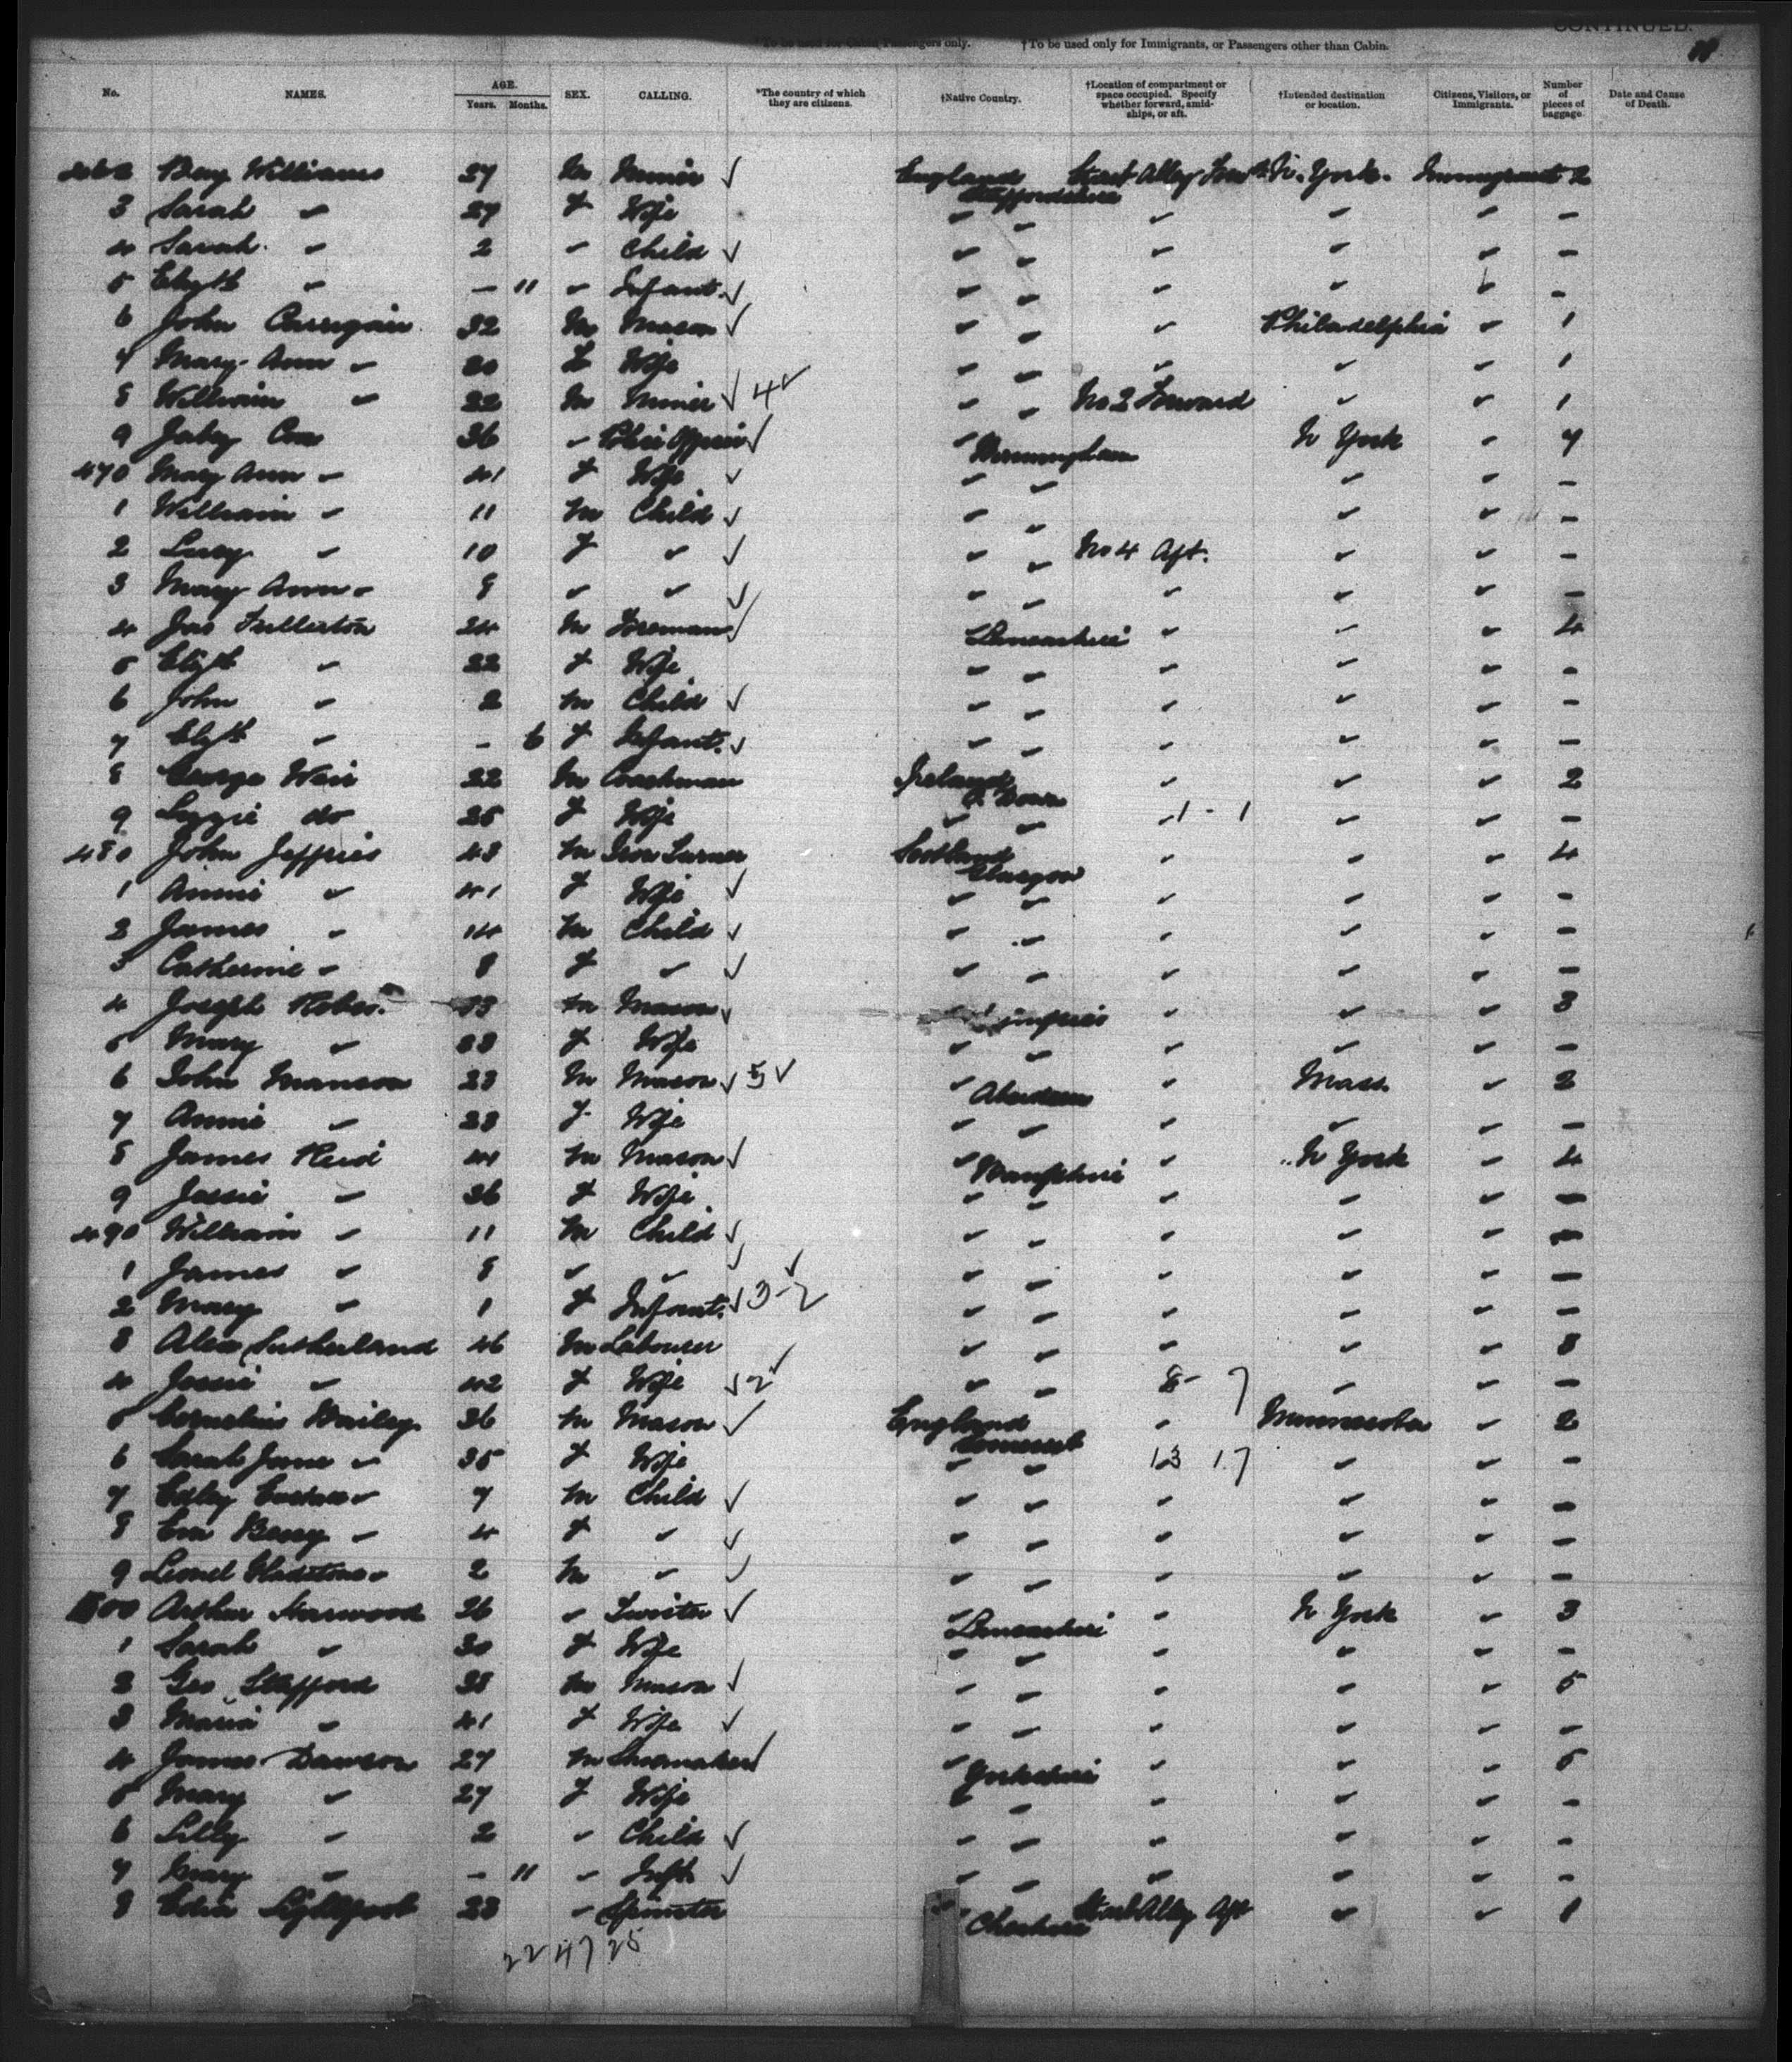 CONTINUED.
*To be used for Cabin Passengers only. †To be used only for Immigrants, or Passengers other than Cabin.
No. NAMES. AGE. Years. Months. SEX. CALLING. *The country of which they are citizens. †Native Country. †Location of compartment or space occupied. Specify whether forward, amidships, or aft. †Intended destination or location. Citizens, Visitors, or Immigrants. Number of pieces of baggage. Date and Cause of Death.
462 Benj Williams 27 M Miner ✓ England Staffordshire Starb Alley N. York. Immigrant 2
3 Sarah " 27 F Wife " " " " " -
4 Sarah " 2 " Child ✓ " " " " " -
5 Elizth " - 11 " Infant ✓ " " " " " -
6 John Carrigan 32 M Mason ✓ " " " Philadelphia " 1
7 Mary Ann " 20 F Wife " " " " " 1
8 William " 22 M Miner ✓ 4 ✓ " " No 2 Forward " " 1
9 Jabez Cox 36 " Police Officer ✓ " Birmingham N York " 7
470 Mary Ann " 41 F Wife ✓ " " " " -
1 William " 11 M Child ✓ " " " " -
2 Lucy " 10 F " ✓ " " No 4 Aft. " " -
3 Mary Ann " 8 " " ✓ " " " " " -
4 Jas Fullerton 24 M Foreman ✓ Lancashire " " " 4
5 Elizth " 22 F Wife " " " " " -
6 John " 2 M Child ✓ " " " " " -
7 Elizth " - 6 F Infant. ✓ " " " " " -
8 George Weir 22 M Coachman Ireland Co. Down " " " 2
9 Lizzie do 25 F Wife " " " 1 - 1 " " -
480 John Jeffries 43 M Iron Turner Scotland Glasgow " " " 4
1 Annie " 41 F Wife ✓ " " " " " -
2 James " 14 M Child ✓ " " " " " -
3 Catherine " 8 F " ✓ " " " " " -
4 Joseph 33 M Mason ✓ " " " 3
5 Mary " 33 F Wife " " " " " -
6 John Manson 23 M Mason ✓ 5 ✓ " Aberdeen " Mass " 2
7 Annie " 23 F Wife " " " " -
8 James Reid 41 M Mason ✓ " Banffshire " N York " 4
9 Jessie " 36 F Wife " " " " " -
490 William " 11 M Child ✓ " " " " " -
1 James " 8 " " ✓ ✓ " " " " " -
2 Mary " 1 F Infant. ✓ 3-2 " " " " " -
3 Alex Sutherland 46 M Labourer " " " " " 8
4 Jessie " 42 F Wife ✓ 2 ✓ " " 8 - 7 " " -
5 Cornelius Bailey 36 M Mason ✓ England Somerset " Minnesota " 2
6 Sarah Jane " 35 F Wife " " 13 17 " " -
7 " 7 M Child ✓ " " " " " -
8 Eva " 4 F " ✓ " " " " " -
9 Lionel Gladstone " 2 M " ✓ " " " " " -
500 Arthur 36 " Twister ✓ " Lancashire " N York " 3
1 Sarah " 30 F Wife " " " " " -
2 Geo Stafford 38 M Mason ✓ " " " " " 5
3 Maria " 41 F Wife ✓ " " " " " -
4 James Dawson 27 M Shoemaker ✓ " Yorkshire " " " 5
5 Mary " 27 F Wife " " " " " -
6 Lilly " 2 " Child ✓ " " " " " -
7 Mary " - 11 " Inft ✓ " " " " " -
8 Lightfoot 23 " Spinster " Cheshire Starb Alley Aft " " 1
22 47 25